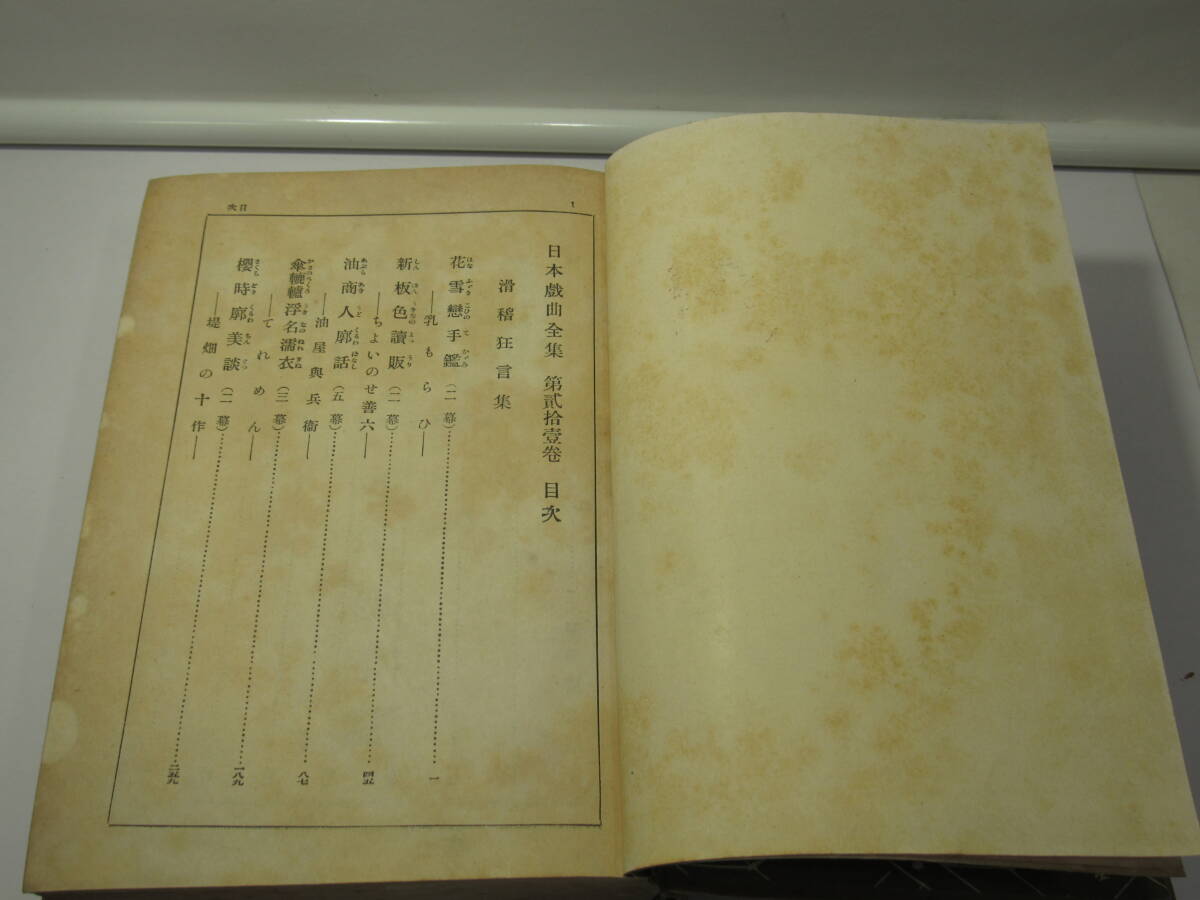 目次
1
日本戲曲全集 第貳拾壹卷 目次
滑稽狂言集
花雪戀手鑑(二幕)………一
――乳もらひ――
新板色讀販(二幕)………四五
――ちょいのせ善六――
油商人廓話(五幕)………八七
――油屋與兵衞――
傘轆轤浮名濡衣(三幕)………一八九
――てれめん――
櫻時廓美談(二幕)………二五九
――堤畑の十作――